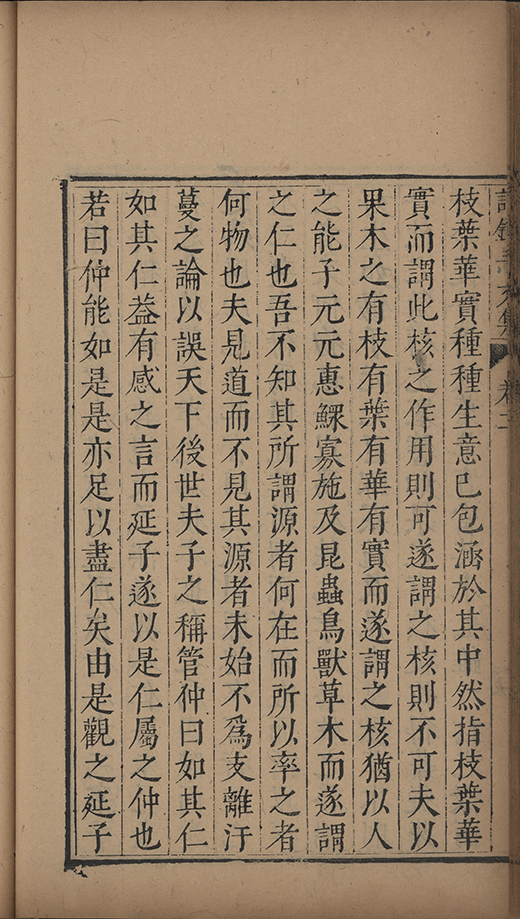 枝葉華實種種生意已包涵於其中然指枝葉華
實而謂此核之作用則可遂謂之核則不可夫以
果木之有枝有葉有華有實而遂謂之核猶以人
之能子元元惠鰥寡施及昆蟲鳥獸草木而遂謂
之仁也吾不知其所謂源者何在而所以率之者
何物也夫見道而不見其源者未始不為支離汗
蔓之論以誤天下後世夫子之稱管仲曰如其仁
如其仁葢有感之言而延子遂以是仁屬之仲也
若曰仲能如是是亦足以盡仁矣由是觀之延子